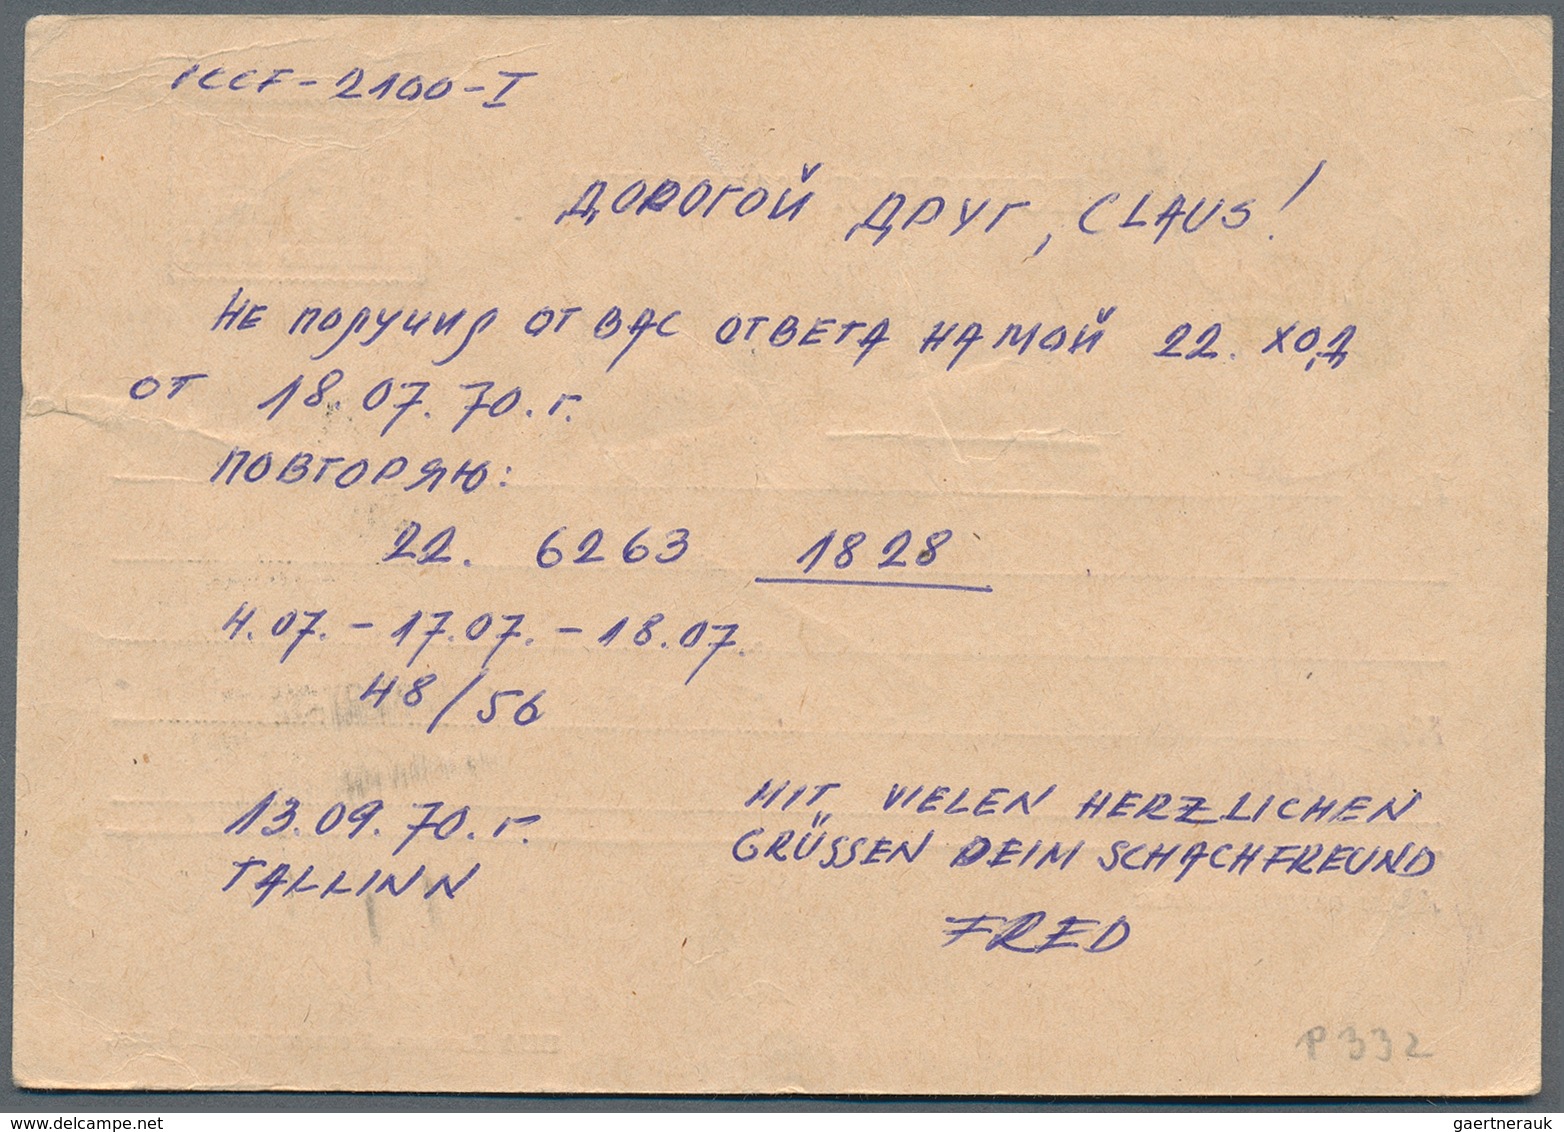 ICCF - 2100 - I
ДОРОГОЙ ДРУГ, CLAUS!
НЕ ПОЛУЧИЛ ОТ ВАС ОТВЕТА НА МОЙ 22. ХОД
ОТ 18.07.70.г.
ПОВТОРЯЮ:
22. 6263 1828
4.07. - 17.07. - 18.07.
48/56
13.09.70.г.
TALLINN
MIT VIELEN HERZLICHEN
GRÜSSEN DEIM SCHACHFREUND
FRED
P 332
gaertnerauk
delcampe.net